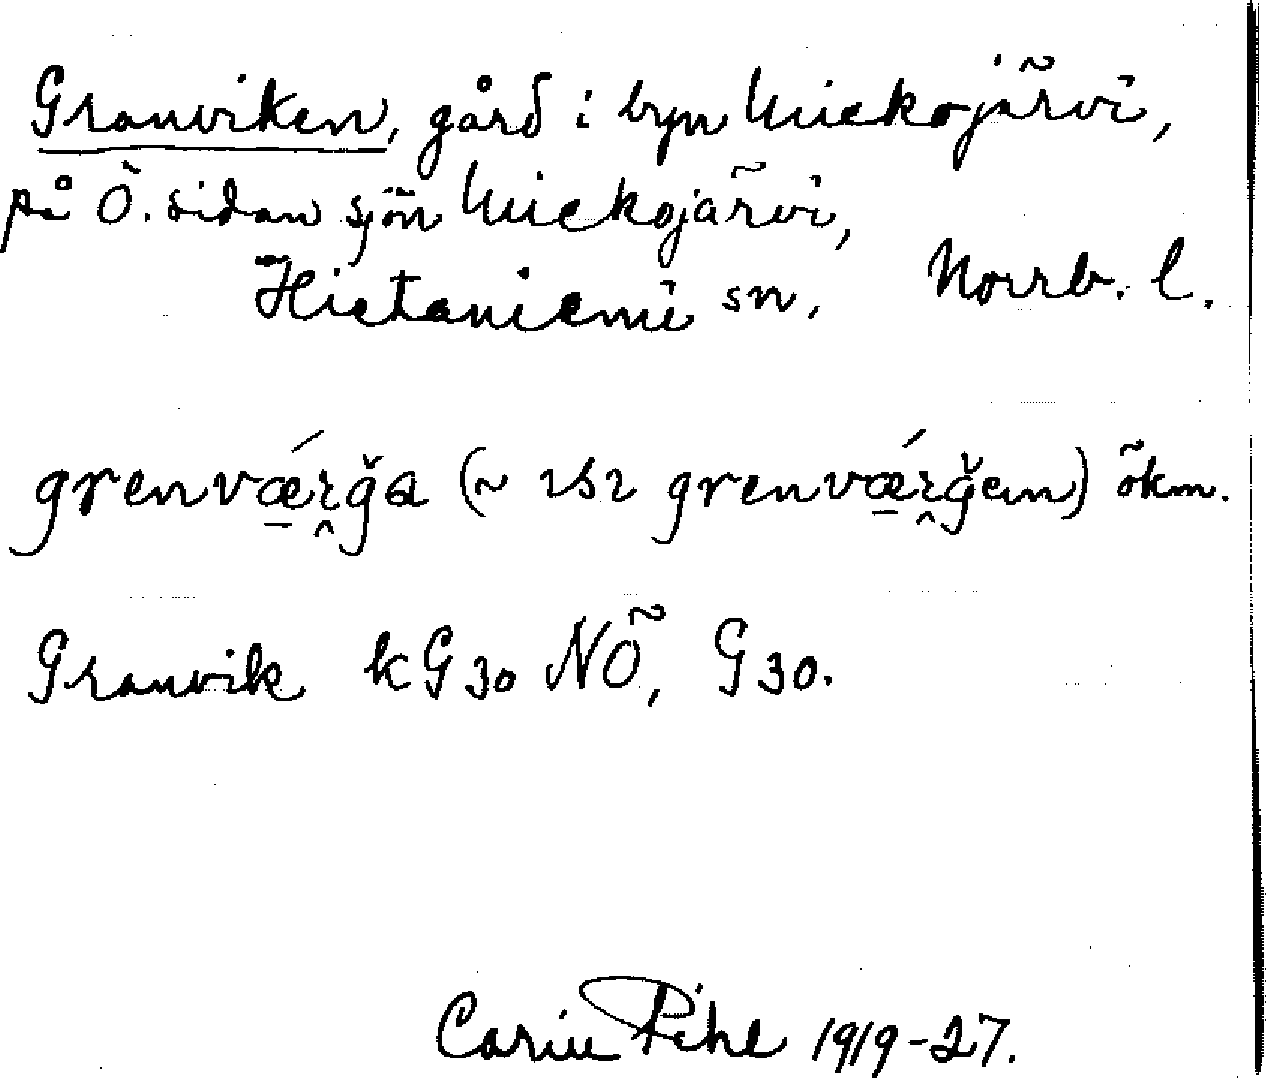 Granviken, gård i byn Miekojärvi,
på Ö. sidan sjön Miekojärvi,
Hietaniemi sn, Norrb. l.
grenværğa (~ grenværğen) ökm.
Granvik kG30 NÖ, G30.
Carin Pihl 1919-27.